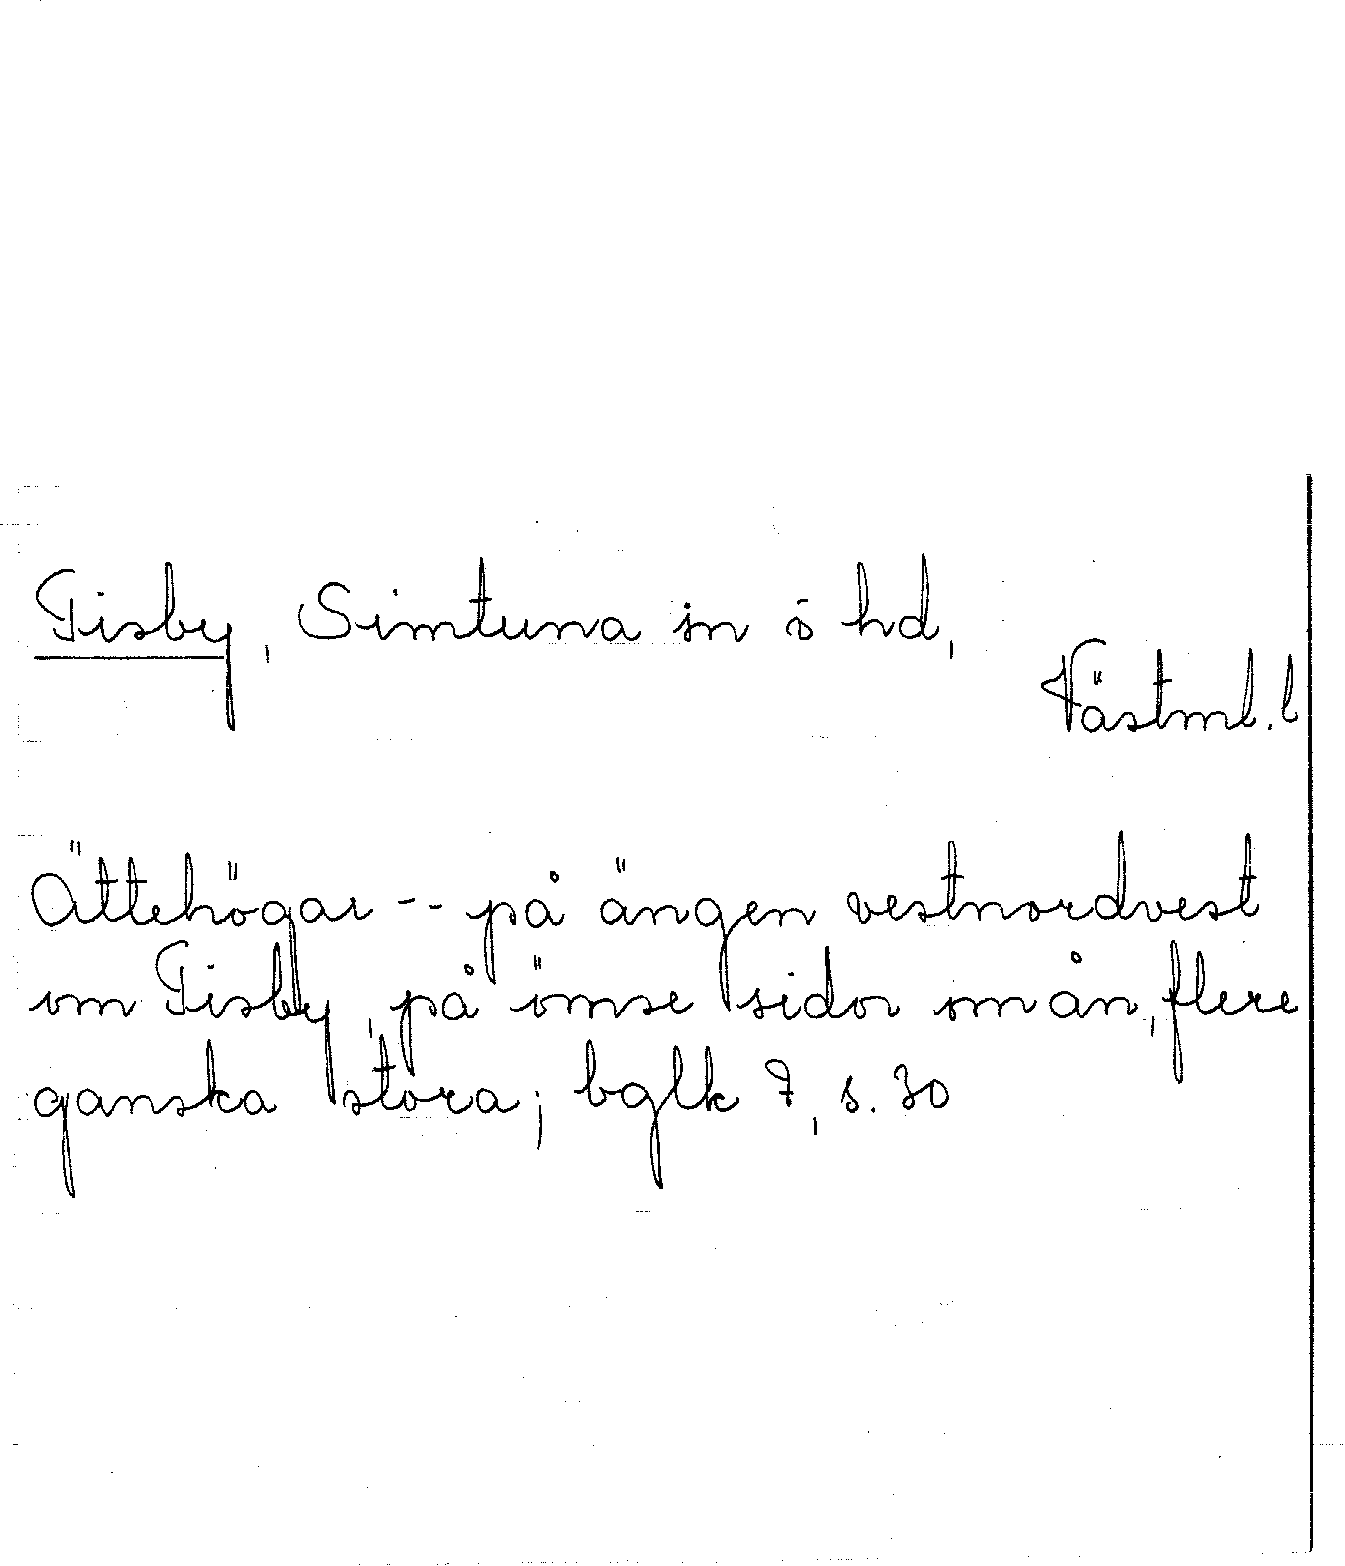 Tisby, Simtuna sn o hd,
Västml. l
Ättehögar -- på ängen vestnordvest
om Tisby, på ömse sidor om ån, flere
ganska stora; bglk 7, s. 30